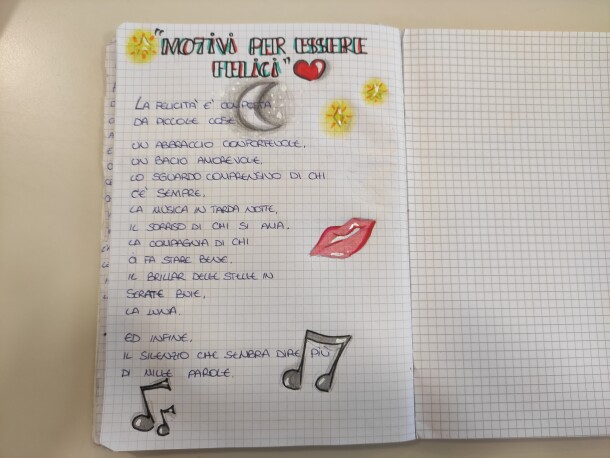 "MOTIVI PER ESSERE
FELICI"
LA FELICITA' E' COMPOSTA
DA PICCOLE COSE
UN ABBRACCIO CONFORTEVOLE,
UN BACIO AMOREVOLE,
LO SGUARDO COMPRENSIVO DI CHI
C'E' SEMPRE,
LA MUSICA IN TARDA NOTTE,
IL SORRISO DI CHI SI AMA.
LA COMPAGNIA DI CHI
CI FA STARE BENE.
IL BRILLAR DELLE STELLE IN
SERATE BUIE,
LA LUNA.
ED INFINE.
IL SILENZIO CHE SEMBRA DIRE PIÙ
DI MILLE PAROLE.